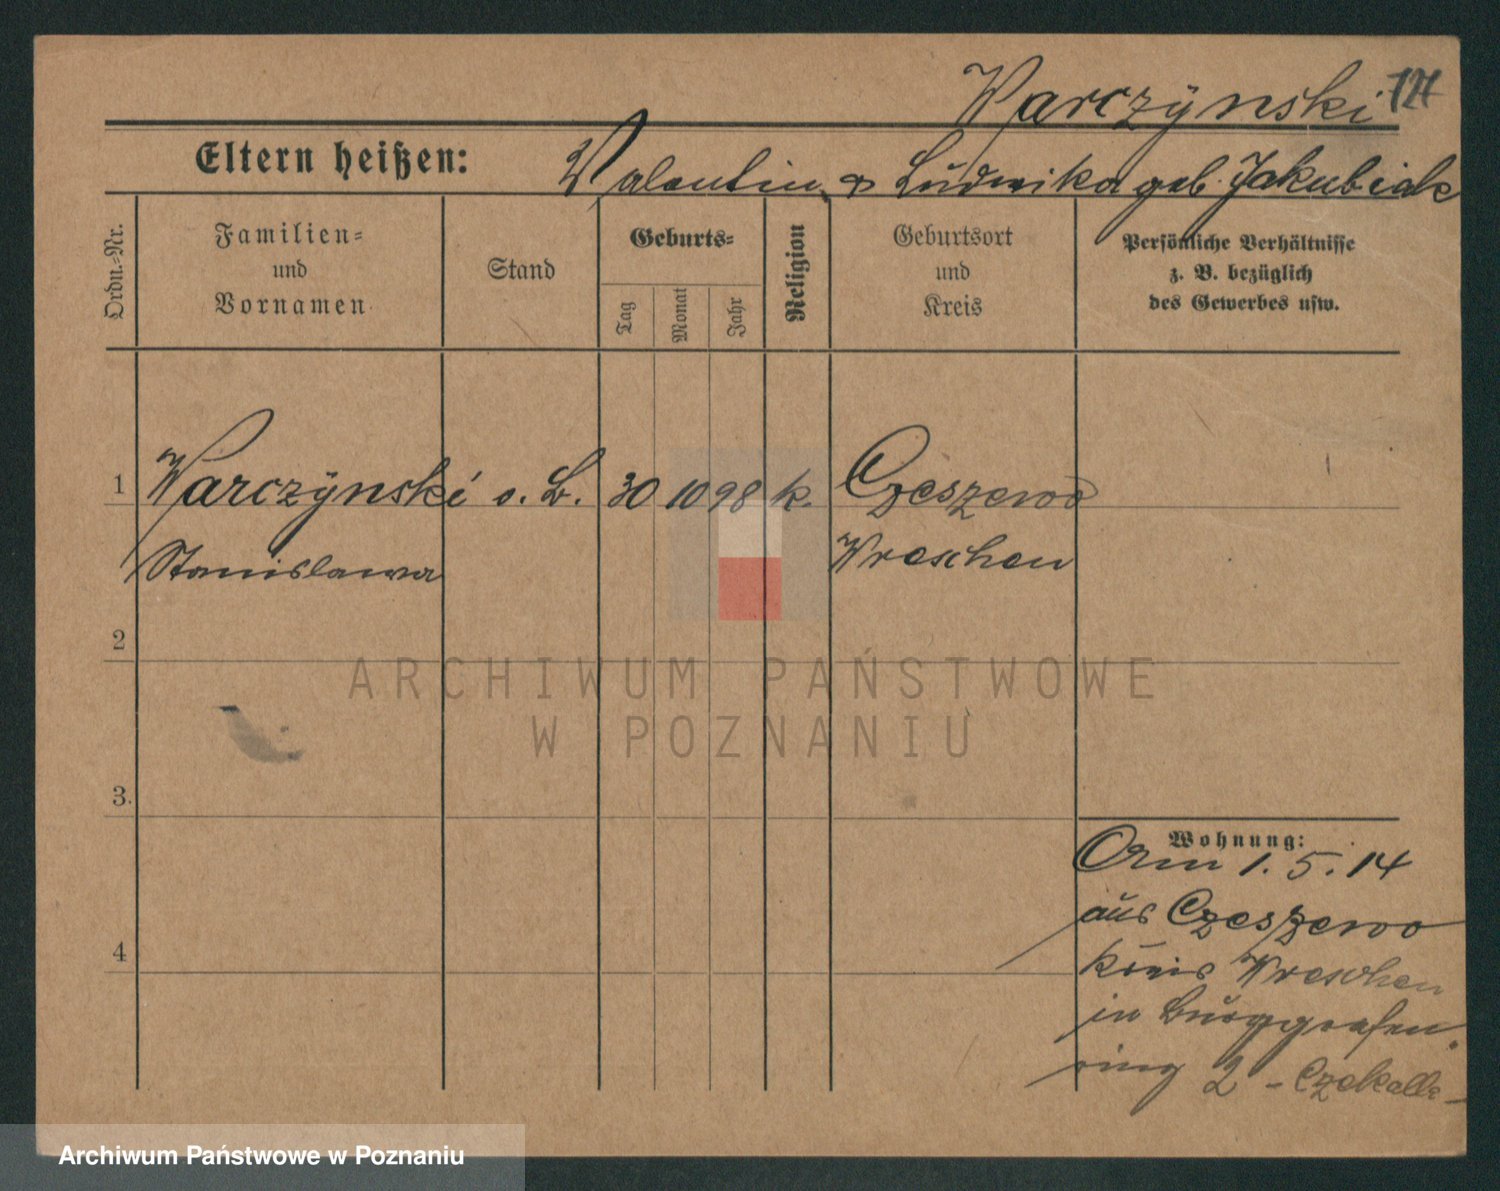 Warczÿnski 124
Eltern heißen: Valentin & Ludwika geb. Jakubiak
Ordn.-Nr.
Familien-
und
Vornamen
Stand
Geburts-
Tag
Monat
Jahr
Religion
Geburtsort
und
Kreis
Persönliche Verhältnisse
z. B. bezüglich
des Gewerbes usw.
1 Warczÿnski o. B. 30 10 98 k. Czeszewo
Stanislawa Wreschen
2
3.
4
Wohnung:
1. 5. 14
aus Czeszewo
Kreis Wreschen
in Burggrafen
ring 2 - Czekalla -
ARCHIWUM PAŃSTWOWE
W POZNANIU
Archiwum Państwowe w Poznaniu